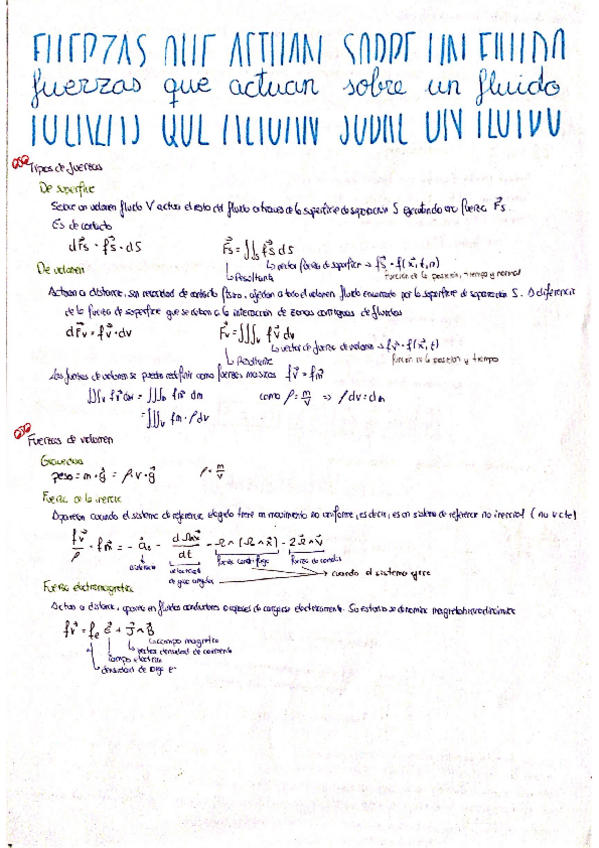 FUERZAS QUE ACTUAN SOBRE UN FLUIDO
fuerzas que actuan sobre un fluido
Tipos de fuerzas
De superficie
Sobre un volumen fluido V actua el resto del fluido a traves de la superficie de separación S ejecutando una fuerza F⃗s.
Es de contacto
dF⃗s = f⃗s · dS F⃗s = ∬s f⃗s dS
Resultante vector fuerza de superficie → f⃗s = f(x⃗, t, n)
función de la posición, tiempo y normal
De volumen
Actuan a distancia, sin necesidad de contacto físico, afectan a todo el volumen fluido encerrado por la superficie de separación S. A diferencia
de la fuerza de superficie que se deben a la interacción de zonas contiguas de fluidos
dF⃗v = f⃗v · dv F⃗v = ∭v f⃗v dv
Resultante vector de fuerza de volumen → f⃗v = f(x⃗, t)
función de la posición y tiempo
Las fuerzas de volumen se pueden redefinir como fuerzas masicas f⃗v = f⃗m
∭v f⃗v dv = ∭ f⃗m dm como ρ = m/v ⇒ ρ dv = dm
= ∭v fm · ρ dv
Fuerzas de volumen
Gravedad
peso = m · g⃗ = ρ · v · g⃗ ρ = m/v
Fuerza de la inercia
Aparecen cuando el sistema de referencia elegido tiene un movimiento no uniforme, es decir, es un sistema de referencia no inercial (no v cte)
f⃗v/ρ = f⃗m = − a⃗o − dΩ∧x⃗/dt − Ω∧(Ω∧x⃗) − 2Ω⃗∧v⃗
velocidad de giro angular fuerza centrifuga fuerza de coriolis → cuando el sistema gira
Fuerza electromagnetica
Actua a distancia, aparece en fluidos conductores o capaces de cargarse electricamente. Su estudio se denomina magnetohidrodinámica
f⃗v = fe E⃗ + J⃗ ∧ B⃗
campo magnetico
vector densidad de corriente
campo electrico
densidad de carga e⁻